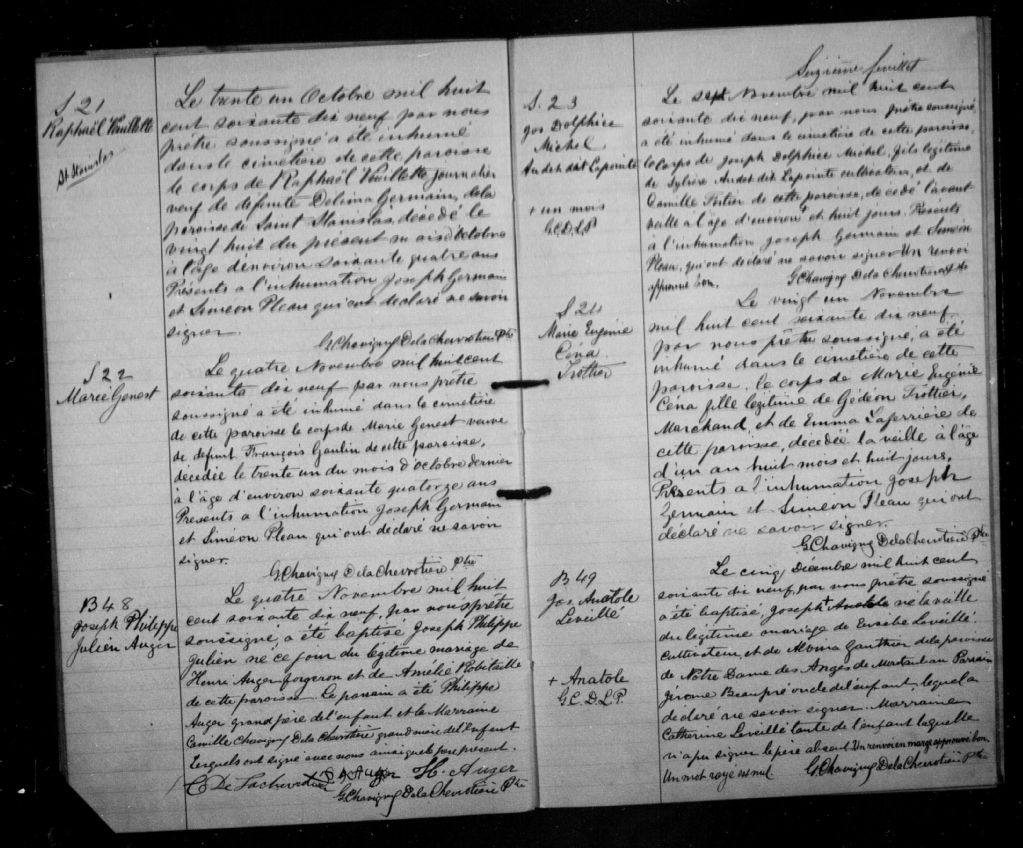 S 21
Raphaël Veillette
St. Stanislas
Le trente un Octobre mil huit
cent soixante dix neuf par nous
prêtre soussigné a été inhumé
dans le cimetière de cette paroisse
le corps de Raphaël Veillette journalier
veuf de défunte Delima Germain, de la
paroisse de Saint Stanislas, décédé le
vingt huit du présent mois d'Octobre
à l'âge d'environ soixante quatre ans
Présents a l'inhumation Joseph Germain
et Simeon Pleau qui ont declaré ne savoir
signer.
G. Chavigny De la Chevrotière Ptre
S 22
Marie Genest
Le quatre Novembre mil huit cent
soixante dix neuf par nous prêtre
soussigné a été inhumé dans le cimetière
de cette paroisse le corps de Marie Genest veuve
de defunt François Gaulin de cette paroisse,
décédée le trente un du mois d'Octobre dernier
à l'âge d'environ soixante quatorze ans
Presents a l'inhumation Joseph Germain
et Simeon Pleau qui ont déclaré ne savoir
signer.
G. Chavigny De la Chevrotière Ptre
B 48
Joseph Philippe
Julien Auger
Le quatre Novembre mil huit
cent soixante dix neuf, par nous prêtre
soussigné, a été baptisé Joseph Philippe
Julien né ce jour du légitime mariage de
Henri Auger forgeron et de Amélie Robitaille
de cette paroisse. Le parrain a été Philippe
Auger grand père de l'enfant et la Marraine
Camille Chavigny De la Chevrotière grand mère de l'Enfant
Lesquels ont signé avec nous ainsi que le père présent.
C De Lachevrotière Auger H. Auger
G. Chavigny De la Chevrotière Ptre
feuillet
S. 23
Jos Dolphice
Michel
Audet dit Lapointe
+ un mois
G. C. D. L. P.
Le sept Novembre mil huit cent
soixante dix neuf, par nous prêtre soussigné
a été inhumé dans le cimetière de cette paroisse,
le corps de Joseph Dolphice Michel, fils légitime
de Sylvère Audet dit Lapointe cultivateur, et de
Camille Portier de cette paroisse, décédé l'avant
veille à l'âge d'environ + et huit jours. Présents
à l'inhumation Joseph Germain et Simeon
Pleau, qui ont declaré ne savoir signer Un renvoi
approuvé bon.
G. Chavigny De la Chevrotière Ptre
S 24
Marie Eugénie
Céna
Trottier
Le vingt un Novembre
mil huit cent soixante dix neuf
par nous prêtre soussigné, a été
inhumé dans le cimetière de cette
paroisse, le corps de Marie Eugénie
Céna fille legitime de Gédéon Trottier,
Marchand, et de Emma Laferrière de
cette paroisse, decedée la veille à l'âge
d'un an huit mois et huit jours.
Présents a l'inhumation Joseph
Germain et Simeon Pleau qui ont
déclaré ne savoir signer.
G. Chavigny De la Chevrotière Ptre
B 49
Jos. Anatole
Leveillé
+ Anatole
G. C. D. L. P.
Le cinq Décembre mil huit cent
soixante dix neuf, par nous prêtre soussigné
a été baptisé, Joseph + né la veille
du légitime mariage de Eusèbe Leveillé
Cultivateur, et de Gauthier de la paroisse
de Notre Dame des Anges de Montauban Parrain
Jérome Beaupré oncle de l'enfant, lequel a
declaré ne savoir signer. Marraine
Catherine Leveillé tante de l'enfant laquelle
n'a pu signer le père absent. Un renvoi en marge approuvé bon.
Un mot rayé est nul.
G. Chavigny De la Chevrotière Ptre